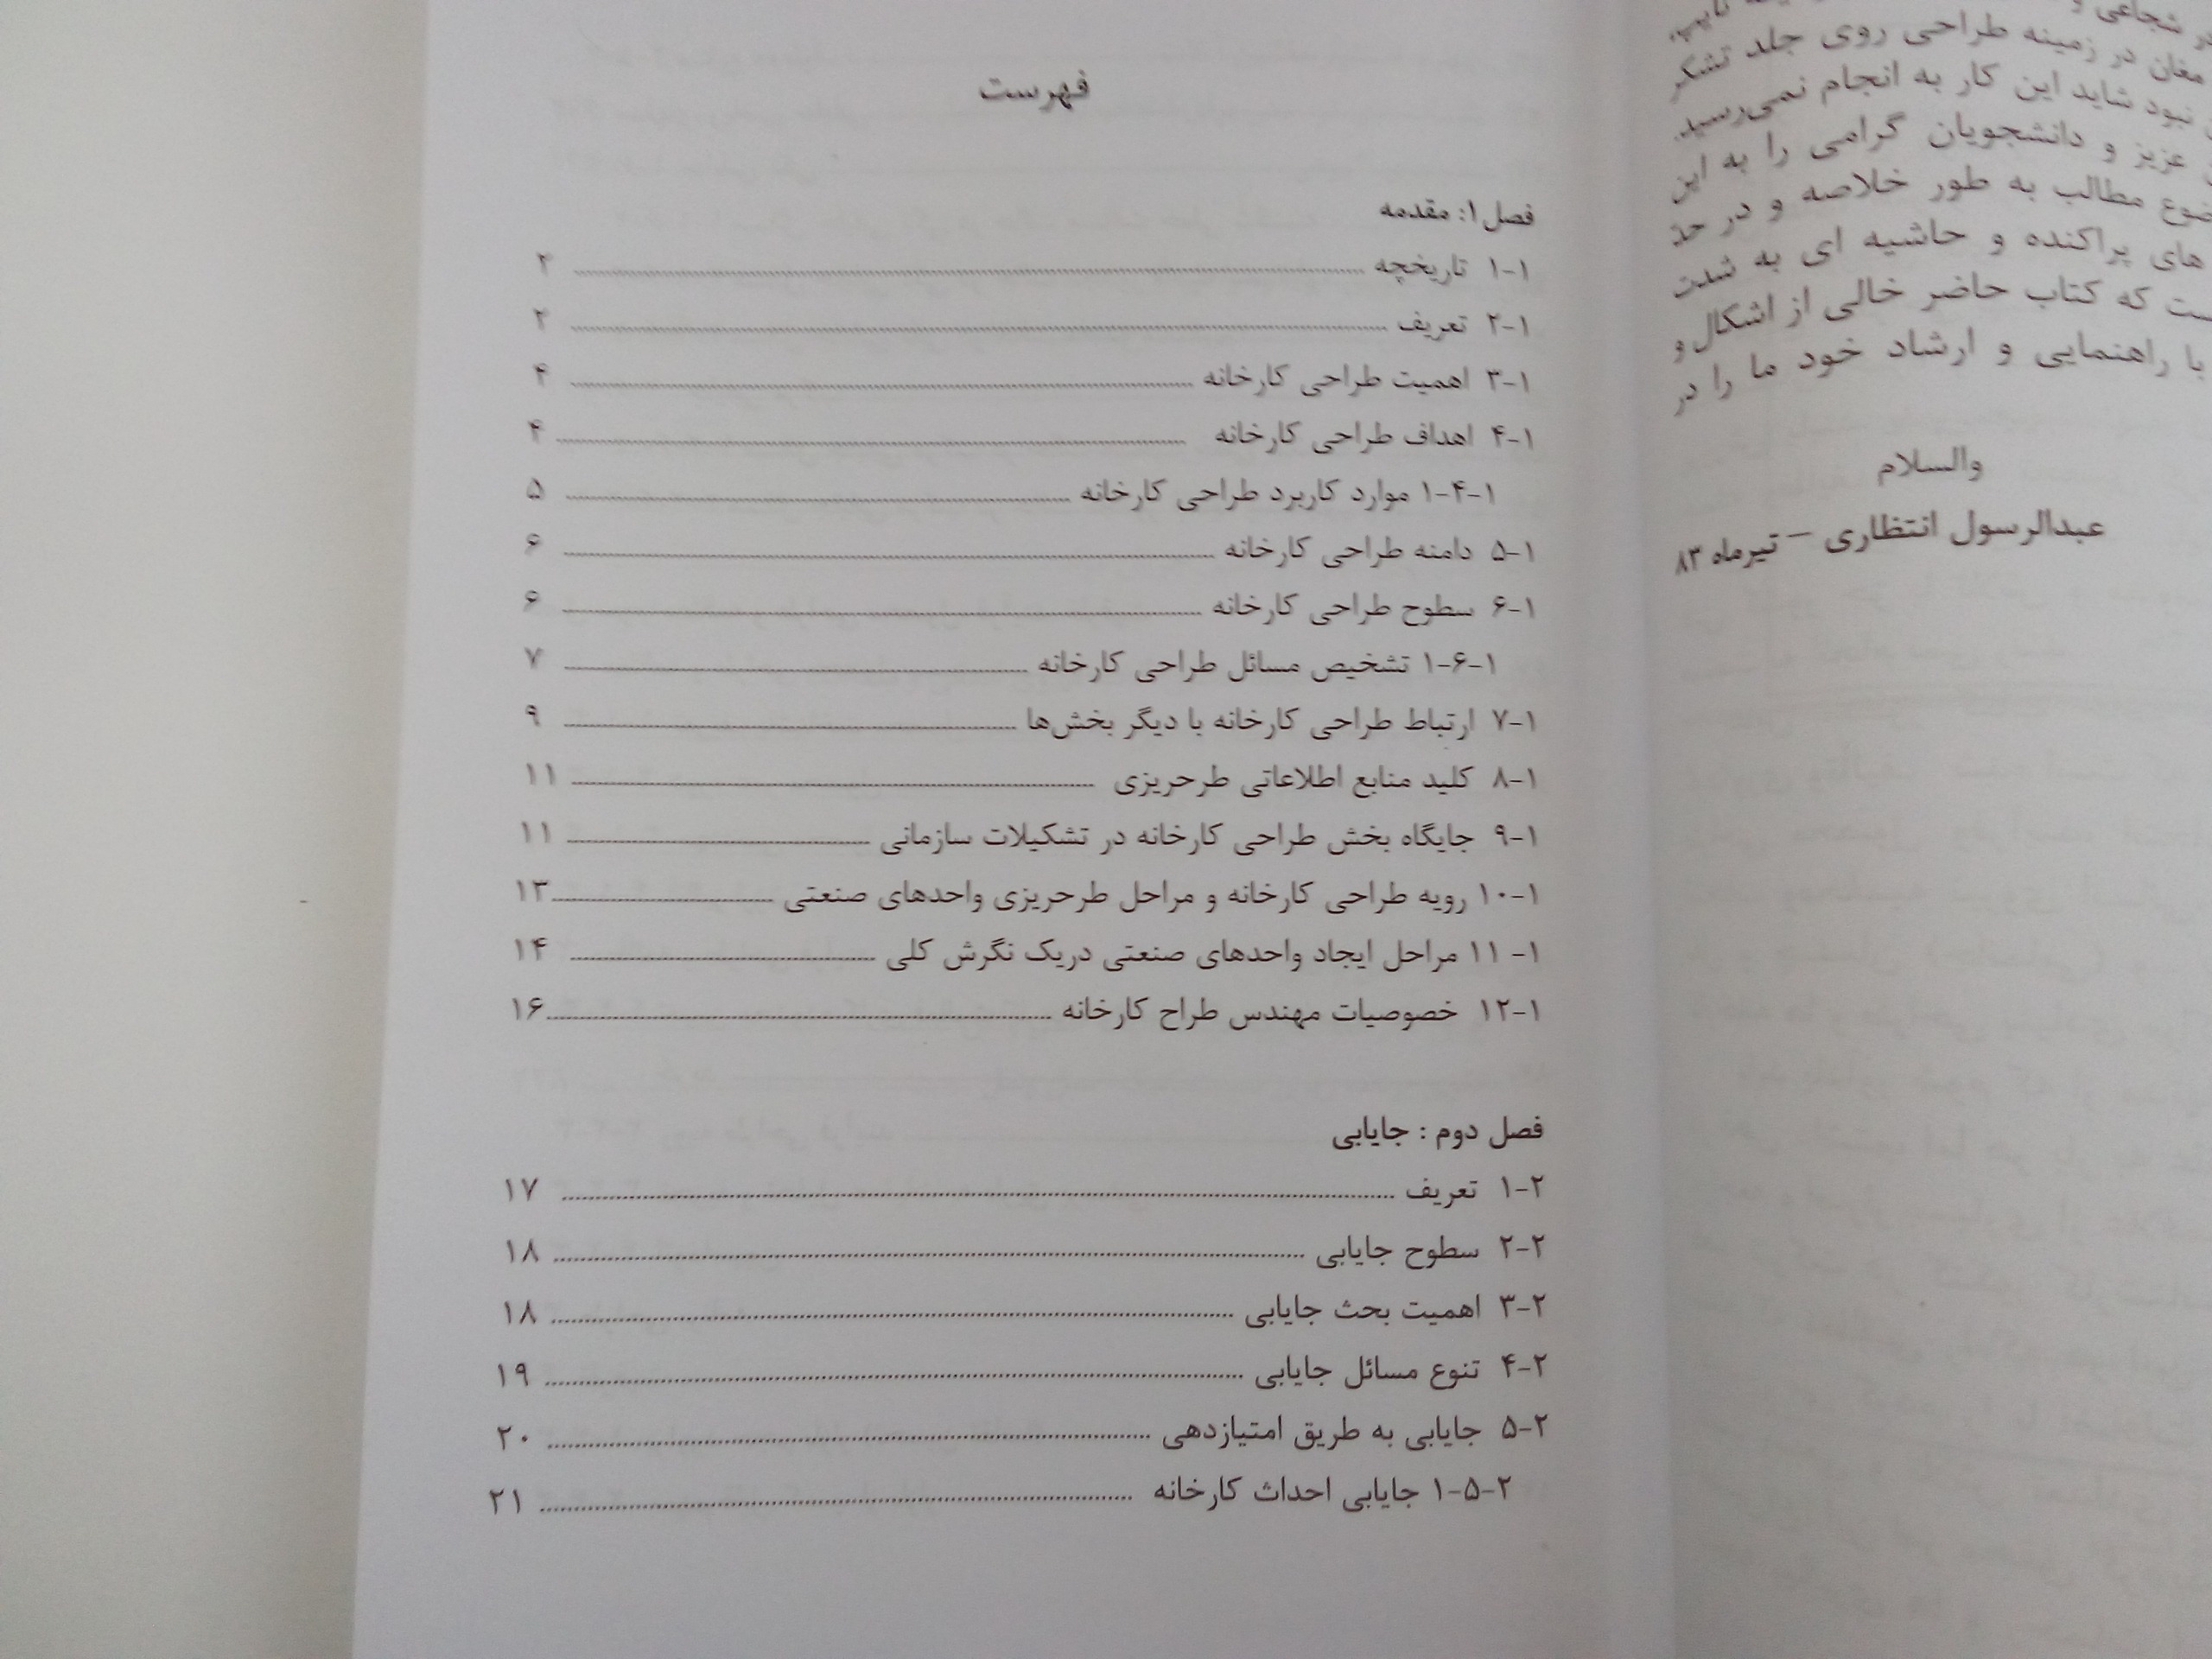 شجاعی و
مغان در زمینه طراحی روی جلد تشکر
نبود شاید این کار به انجام نمی‌رسید.
عزیز و دانشجویان گرامی را به این
مطالب به طور خلاصه و در حد
های پراکنده و حاشیه ای به شدت
که کتاب حاضر خالی از اشکال و
با راهنمایی و ارشاد خود ما را در
والسلام
عبدالرسول انتظاری – تیرماه ۸۳
فهرست
فصل ۱: مقدمه
۱-۱ تاریخچه ........ ۲
۱-۲ تعریف ........ ۲
۱-۳ اهمیت طراحی کارخانه ........ ۴
۱-۴ اهداف طراحی کارخانه ........ ۴
۱-۴-۱ موارد کاربرد طراحی کارخانه ........ ۵
۱-۵ دامنه طراحی کارخانه ........ ۶
۱-۶ سطوح طراحی کارخانه ........ ۶
۱-۶-۱ تشخیص مسائل طراحی کارخانه ........ ۷
۱-۷ ارتباط طراحی کارخانه با دیگر بخش‌ها ........ ۹
۱-۸ کلید منابع اطلاعاتی طرحریزی ........ ۱۱
۱-۹ جایگاه بخش طراحی کارخانه در تشکیلات سازمانی ........ ۱۱
۱-۱۰ رویه طراحی کارخانه و مراحل طرحریزی واحدهای صنعتی ........ ۱۳
۱- ۱۱ مراحل ایجاد واحدهای صنعتی دریک نگرش کلی ........ ۱۴
۱-۱۲ خصوصیات مهندس طراح کارخانه ........ ۱۶
فصل دوم : جایابی
۲-۱ تعریف ........ ۱۷
۲-۲ سطوح جایابی ........ ۱۸
۲-۳ اهمیت بحث جایابی ........ ۱۸
۲-۴ تنوع مسائل جایابی ........ ۱۹
۲-۵ جایابی به طریق امتیازدهی ........ ۲۰
۲-۵-۱ جایابی احداث کارخانه ........ ۲۱